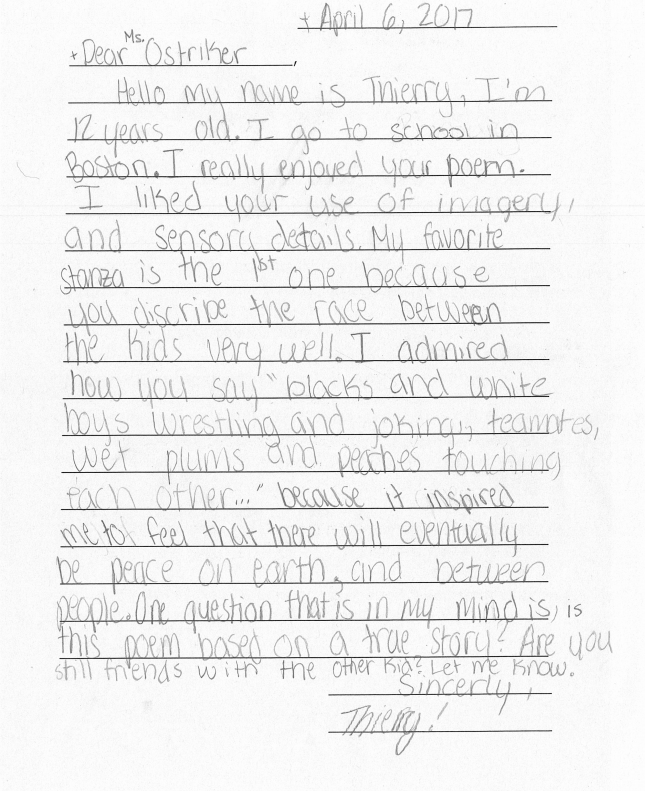 + April 6, 2017
+ Dear Ms. Ostriker,
Hello my name is Thierry, I'm
12 years old. I go to school in
Boston. I really enjoyed your poem.
I liked your use of imagery,
and sensory details. My favorite
stanza is the 1st one because
you discribe the race between
the kids very well. I admired
how you say "blacks and white
boys wrestling and joking, teamates,
wet plums and peaches touching
each other..." because it inspired
me to feel that there will eventually
be peace on earth, and between
people. One question that is in my mind is, is
this poem based on a true story? Are you
still friends with the other kid? Let me know.
Sincerly,
Thierry!